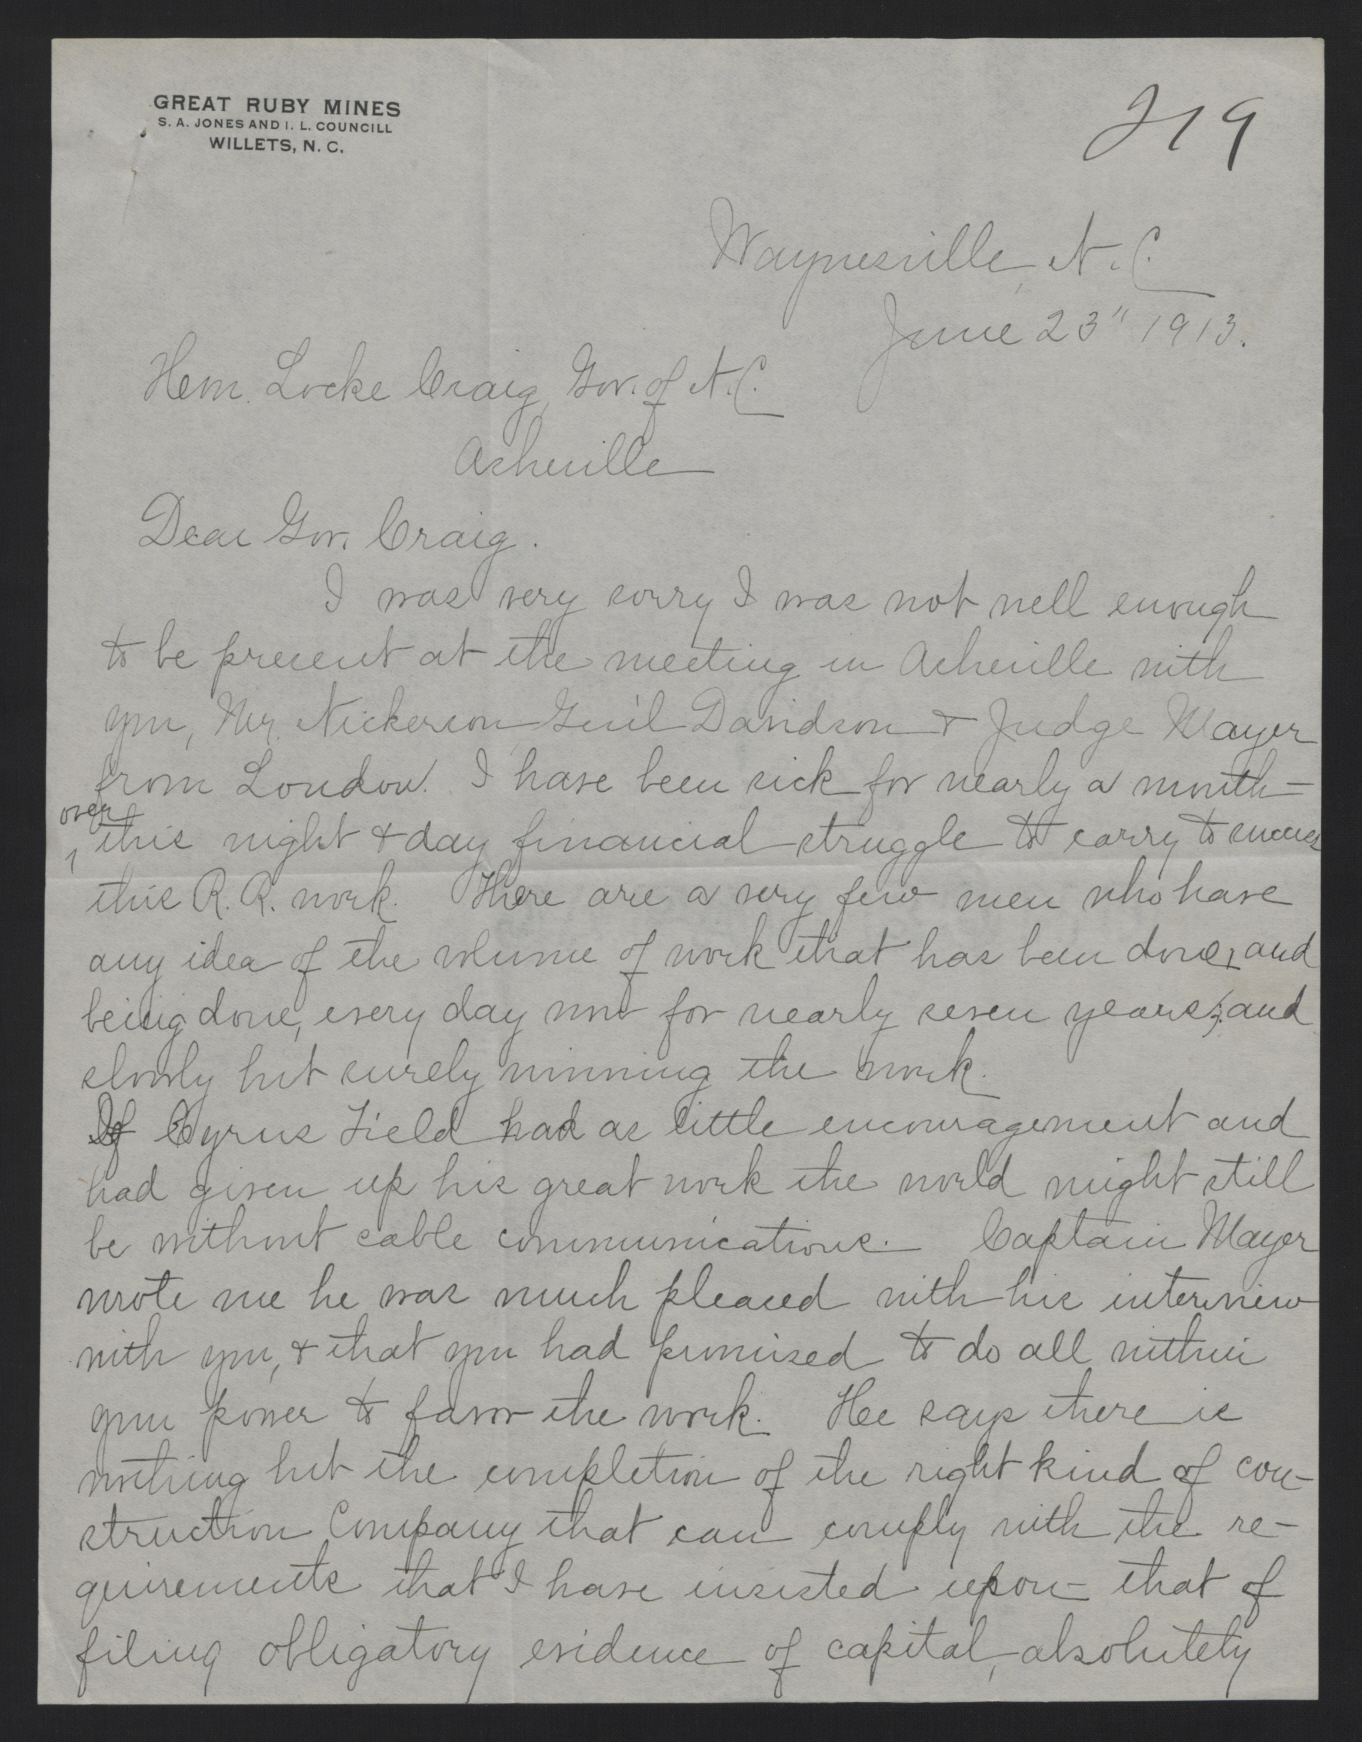 GREAT RUBY MINES
S. A. JONES AND I. L. COUNCILL
WILLETS, N. C.
219
Waynesville, N. C.
June 23" 1913.
Hon. Locke Craig, Gov. of N. C.
Asheville
Dear Gov. Craig.
I was very sorry I was not well enough
to be present at the meeting in Asheville with
you, Mr. Nickerson Gen'l Davidson & Judge Mayer
from London. I have been sick for nearly a month–
over
this night & day financial struggle to carry to success
this R. R. work. There are a very few men who have
any idea of the volume of work that has been done, and
being done, every day now for nearly seven years; and
slowly but surely winning the work.
If Cyrus Field had as little encouragement and
had given up his great work the world might still
be without cable communications. Captain Mayer
wrote me he was much pleased with his interview
with you, & that you had promised to do all within
your power to favor the work. He says there is
nothing but the completion of the right kind of con-
struction Company that can comply with the re-
quirements that I have insisted upon– that of
filing obligatory evidence of capital, absolutely